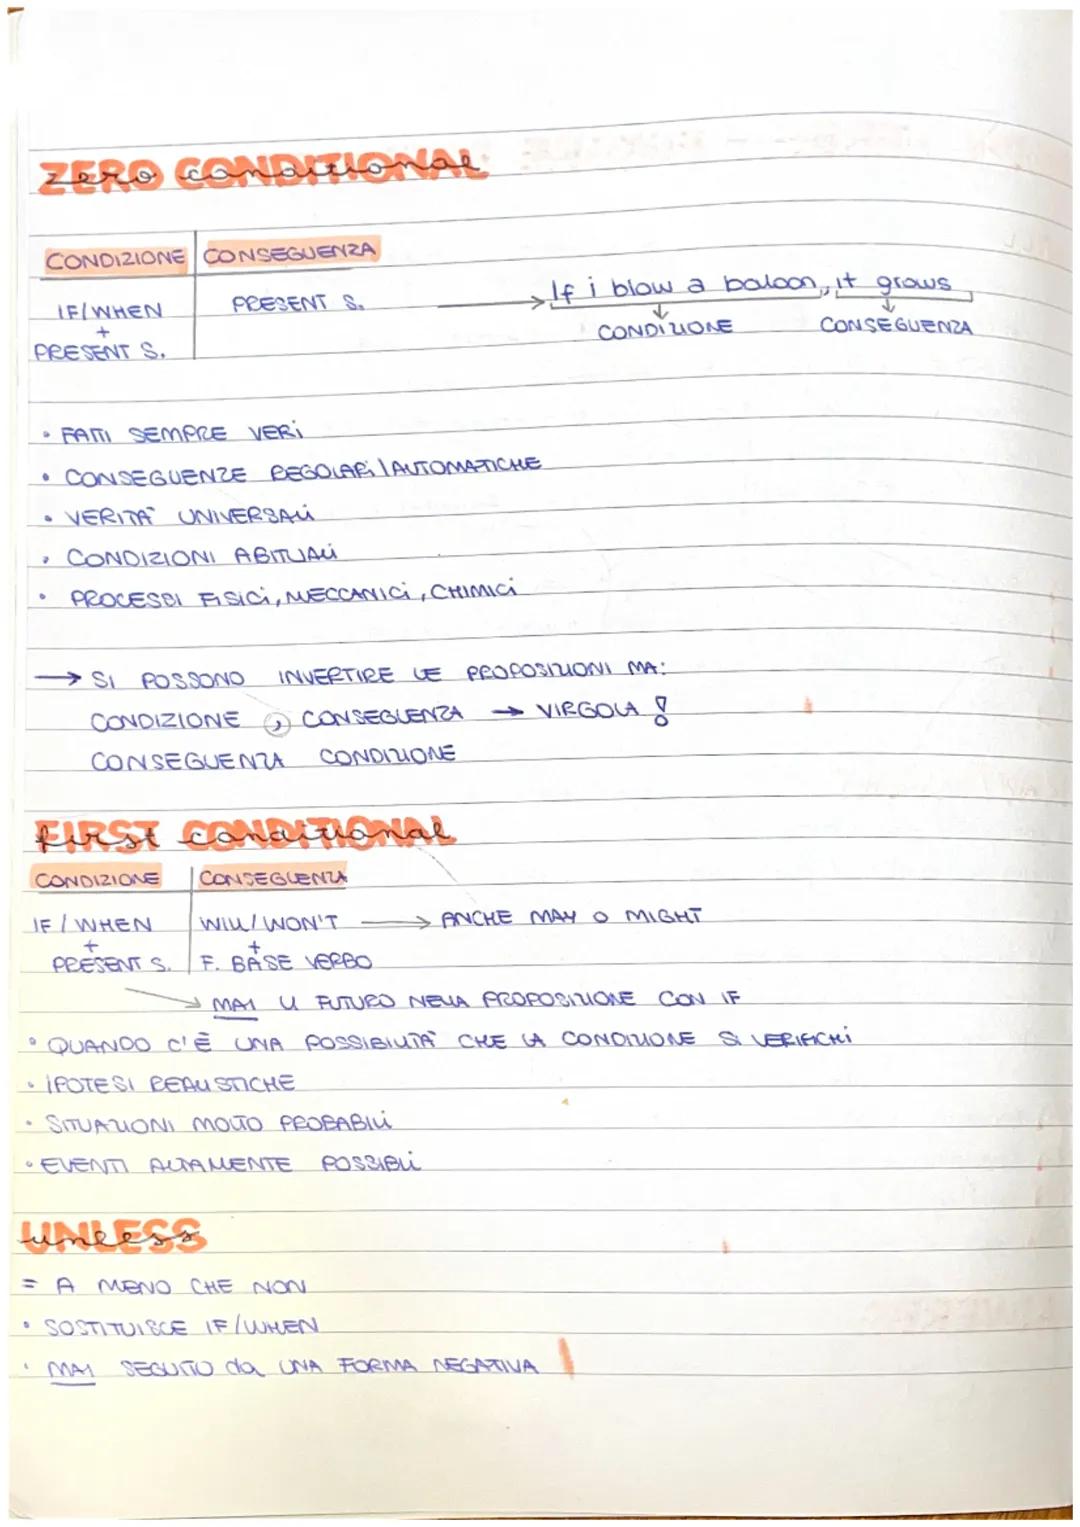 ZERO CONDITIONAL
CONDIZIONE CONSEGUENZA
IF/WHEN PRESENT S. → If i blow a baloon, it grows
+ CONDIZIONE CONSEGUENZA
PRESENT S.
• FATTI SEMPRE VERi
• CONSEGUENZE REGOLARi/AUTOMATICHE
• VERITA' UNIVERSALi
• CONDIZIONI ABITUALi
• PROCESSI FISICi, MECCANICi, CHIMICi
→ SI POSSONO INVERTIRE LE PROPOSIZIONI MA:
CONDIZIONE , CONSEGUENZA → VIRGOLA !
CONSEGUENZA CONDIZIONE
FIRST CONDITIONAL
CONDIZIONE CONSEGUENZA
IF / WHEN WILL/WON'T → ANCHE MAY O MIGHT
+ +
PRESENT S. F. BASE VERBO
→ MAI IL FUTURO NELLA PROPOSIZIONE CON IF
• QUANDO C'È UNA POSSIBILITA' CHE LA CONDIZIONE SI VERIFICHi
• IPOTESI REALISTICHE
• SITUAZIONI MOLTO PROBABILi
• EVENTI ALTAMENTE POSSIBILi
UNLESS
= A MENO CHE NON
• SOSTITUISCE IF/WHEN
• MAI SEGUITO da UNA FORMA NEGATIVA